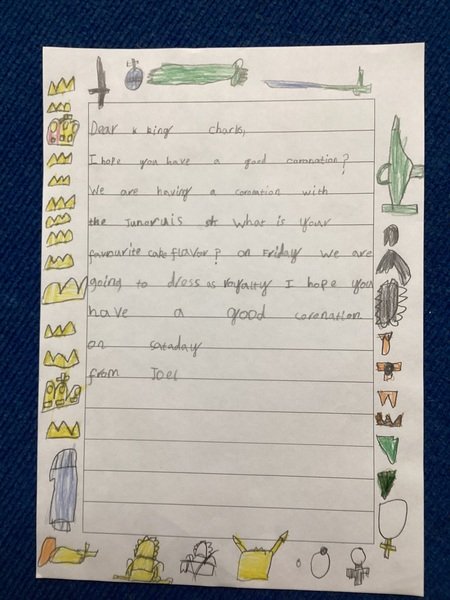 Dear k king charls,
I hope you have a good coronation?
We are having a coronation with
the Junoruis sk What is your
favourite cake flavor? on Friday we are
going to dress as royalty I hope you
have a good coronation
on sataday
from Joel